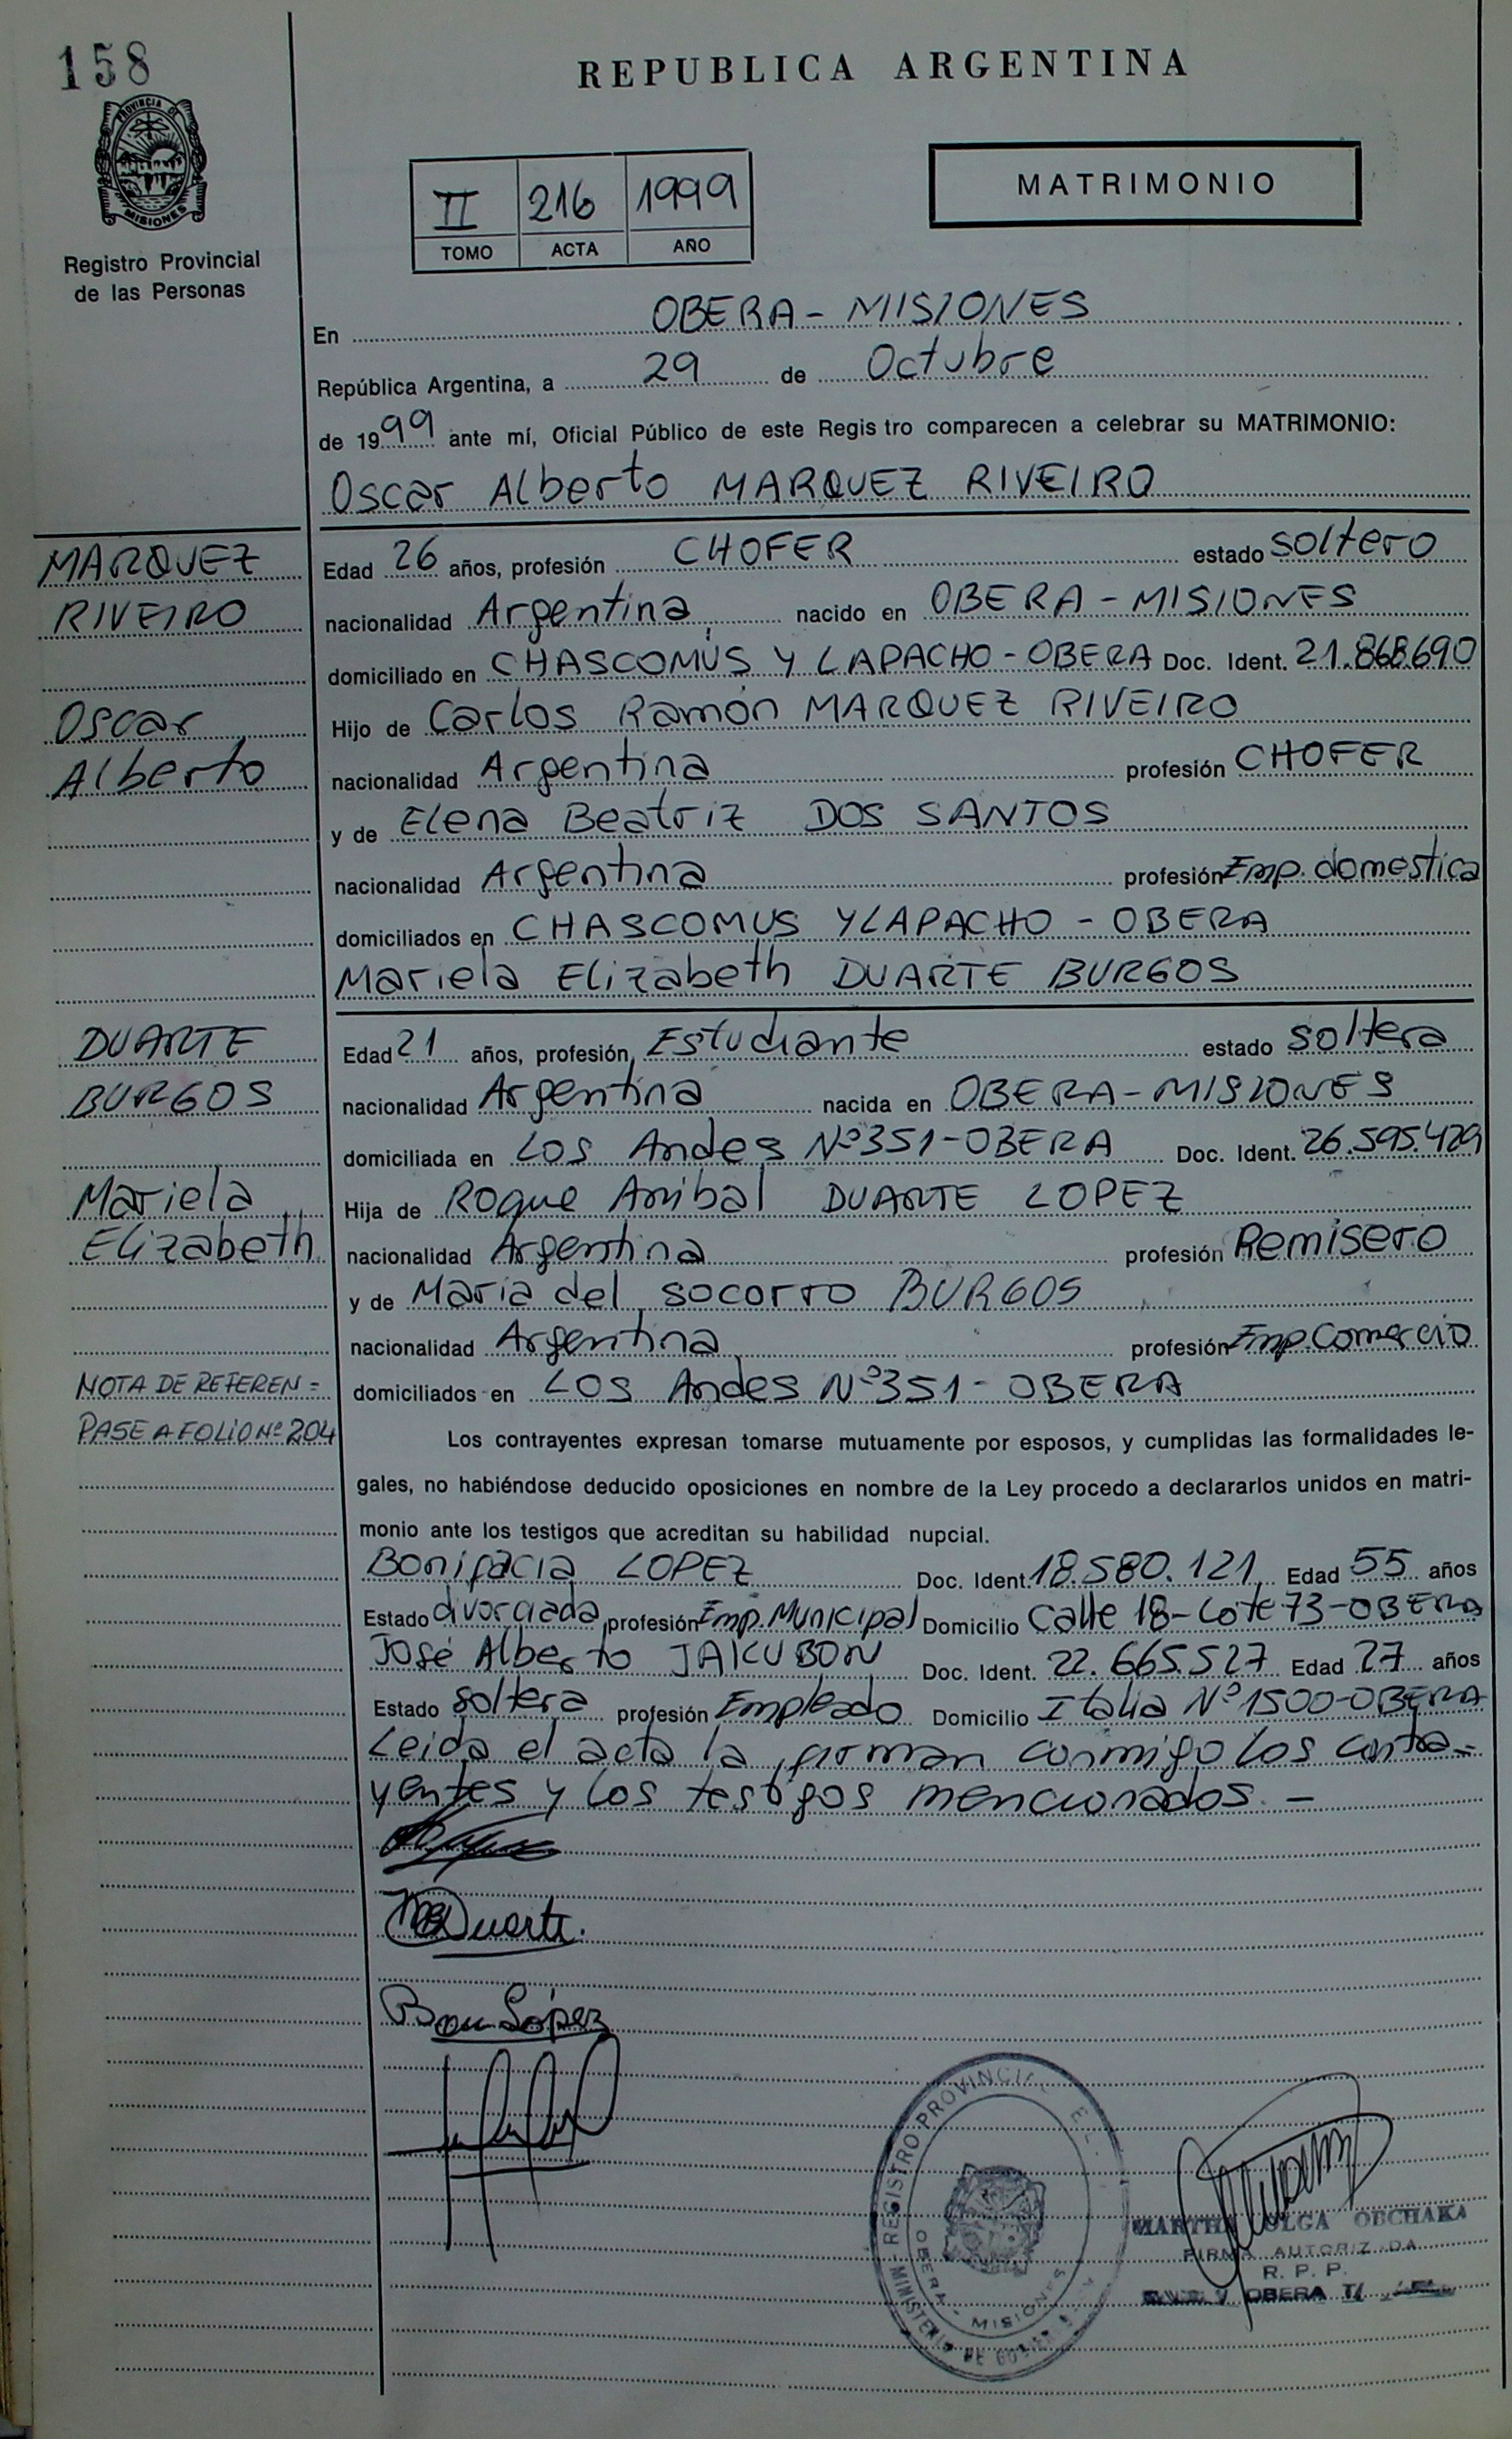 158
REPUBLICA ARGENTINA
PROVINCIA DE
MISIONES
Registro Provincial
de las Personas
II 216 1999
TOMO ACTA AÑO
MATRIMONIO
En OBERA - MISIONES
República Argentina, a 29 de Octubre
de 1999 ante mí, Oficial Público de este Regis tro comparecen a celebrar su MATRIMONIO:
Oscar Alberto MARQUEZ RIVEIRO
MARQUEZ
RIVEIRO
Oscar
Alberto
Edad 26 años, profesión CHOFER estado soltero
nacionalidad Argentina, nacido en OBERA - MISIONES
domiciliado en CHASCOMÚS Y LAPACHO - OBERA Doc. Ident. 21.868.690
Hijo de Carlos Ramón MARQUEZ RIVEIRO
nacionalidad Argentina profesión CHOFER
y de Elena Beatriz DOS SANTOS
nacionalidad Argentina profesión Emp. domestica
domiciliados en CHASCOMUS Y LAPACHO - OBERA
Mariela Elizabeth DUARTE BURGOS
DUARTE
BURGOS
Mariela
Elizabeth
Edad 21 años, profesión Estudiante estado soltera
nacionalidad Argentina nacida en OBERA - MISIONES
domiciliada en Los Andes Nº 351 - OBERA Doc. Ident. 26.595.429
Hija de Roque Anibal DUARTE LOPEZ
nacionalidad Argentina profesión Remisero
y de Maria del socorro BURGOS
nacionalidad Argentina profesión Emp. Comercio
domiciliados en Los Andes Nº 351 - OBERA
NOTA DE REFEREN =
PASE A FOLIO Nº 204
Los contrayentes expresan tomarse mutuamente por esposos, y cumplidas las formalidades le-
gales, no habiéndose deducido oposiciones en nombre de la Ley procedo a declararlos unidos en matri-
monio ante los testigos que acreditan su habilidad nupcial.
Bonifacia LOPEZ Doc. Ident. 18.580.121 Edad 55 años
Estado divorciada, profesión Emp. Municipal Domicilio Calle 18 - Lote 73 - OBERA
José Alberto JAKUBON Doc. Ident. 22.665.527 Edad 27 años
Estado soltera profesión Empleado Domicilio Italia Nº 1500 - OBERA
Leida el acta la firman conmigo los contra-
yentes y los testigos mencionados. -
Duarte.
Bon López
REGISTRO PROVINCIAL
OBERA - MISIONES
MINISTERIO DE
MARTHA OLGA OBCHAKA
FIRMA AUTORIZADA
R. P. P.
OBERA